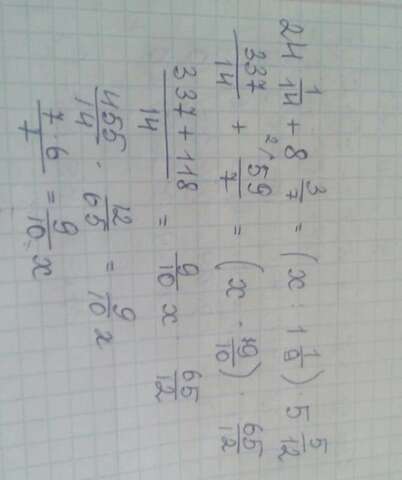 24 1/14 + 8 3/7 = (x : 1 1/9) · 5 5/12
337/14 + ²⁄59/7 = (x · 19/10) · 65/12
337+118/14 = 9/10 x · 65/12
455/14 · 12/65 = 9/10 x
7·6/7 = 9/10 x